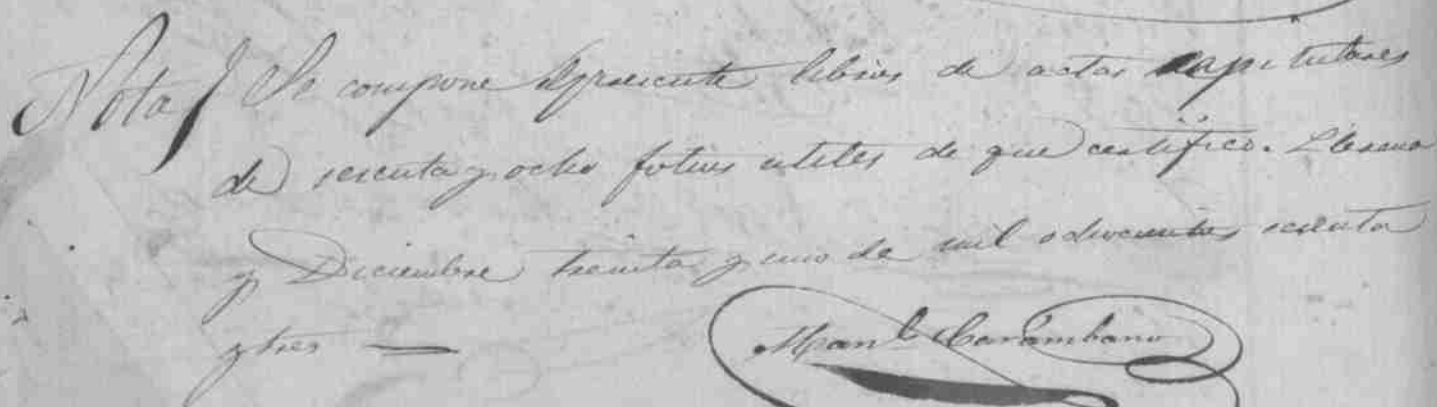 Nota / Se compone el presente libro de actas capitulares
de sesenta y ocho folios utiles de que certifico. Llerena
y Diciembre treinta y uno de mil ochocientos sesenta
y tres —
Manl Carámbano